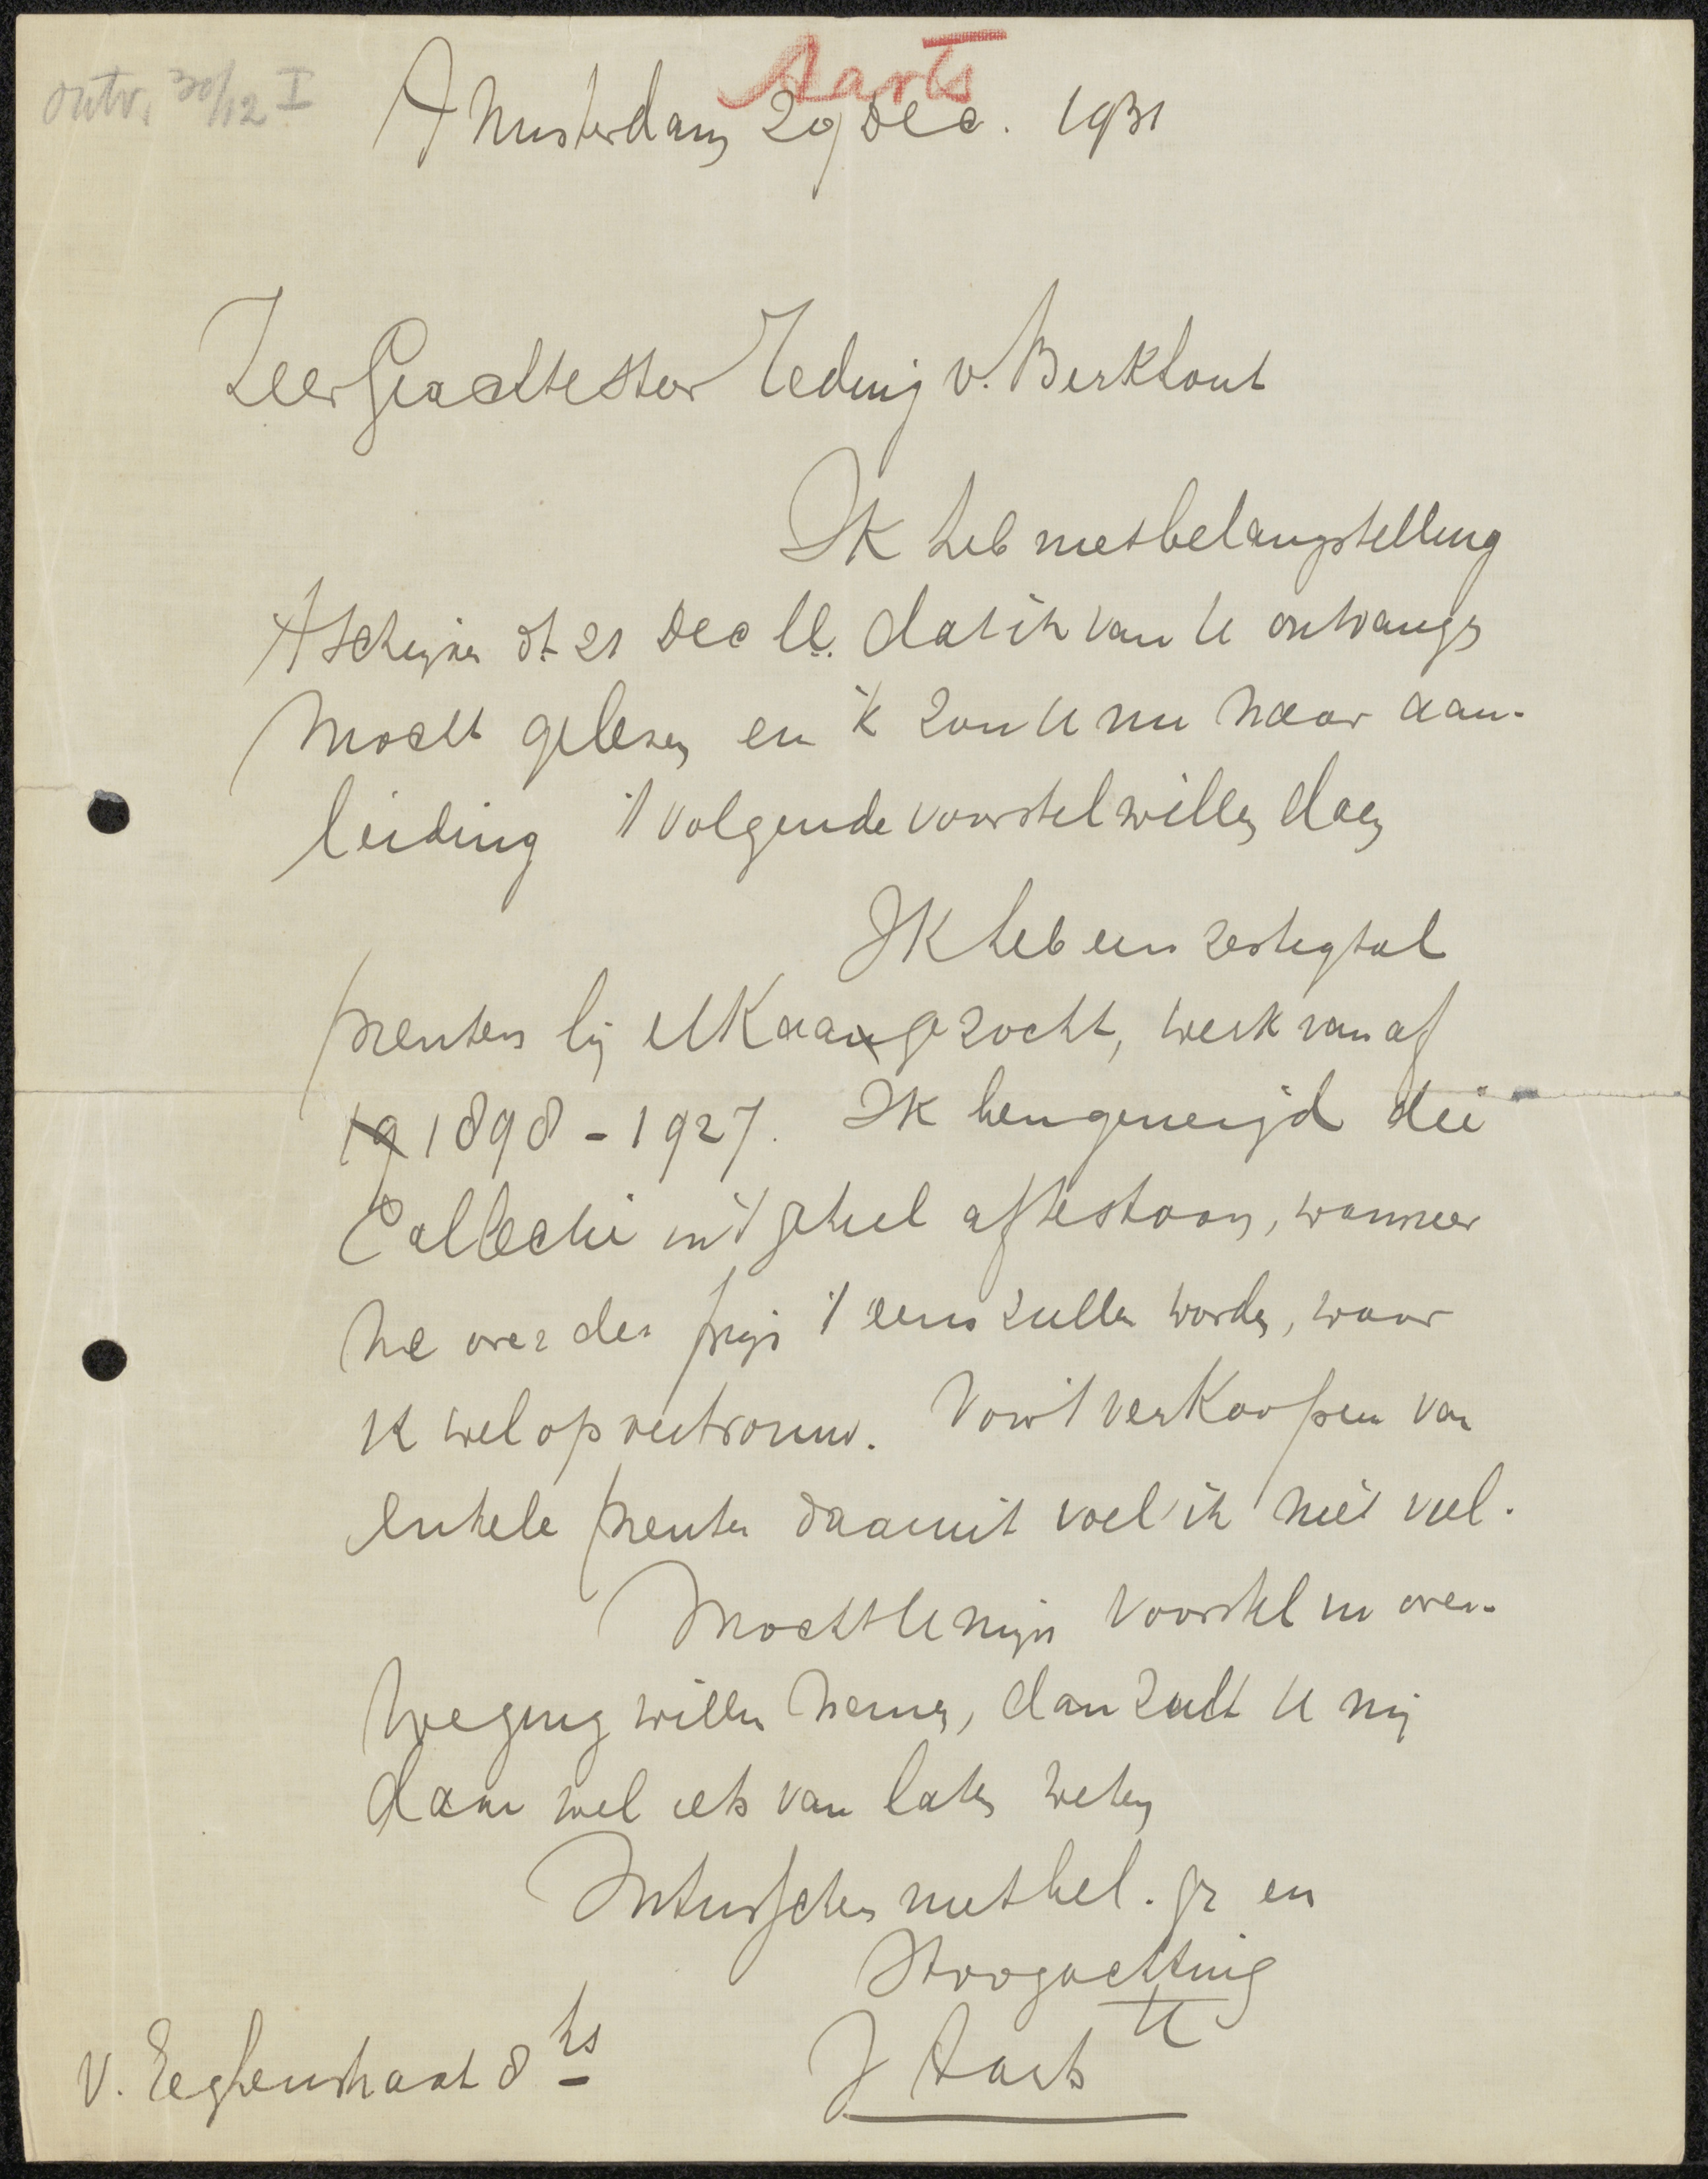 ontv. 30/12 I
Aarts
Amsterdam 29 Dec. 1931
Zeer Geachte Heer Teding v. Berkhout
Ik heb met belangstelling
't schrijven dt. 21 Dec ll. dat ik van U ontvangen
mocht gelezen en ik zou U nu naar aan-
leiding 't volgende voorstel willen doen
Ik heb een zestigtal
prenten bij elkaar gezocht, werk vanaf
19 1898 - 1927. Ik ben geneigd die
Collectie in 't geheel af te staan, wanneer
we over den prijs 't eens zullen worden, waar
ik wel op vertrouw. Voor 't verkoopen van
enkele prenten daaruit voel ik niet veel.
Mocht U mijn voorstel in over-
weging willen nemen, dan zult U mij
daar wel iets van laten weten
Intusschen met bel. gr en
Hoogachting
U
J Aarts
v. Eeghenstraat 8 hs